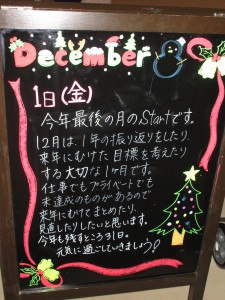 December
1日(金)
今年最後の月のStartです。
12月は、1年の振り返りをしたり、
来年にむけた目標を考えたり
する大切な1ヶ月です。
仕事でもプライベートでも
未達成のものがあるので
来年にむけてまとめたり、
見直したりしたいと思います。
今年も残すところ31日。
元気に過ごしていきましょう!